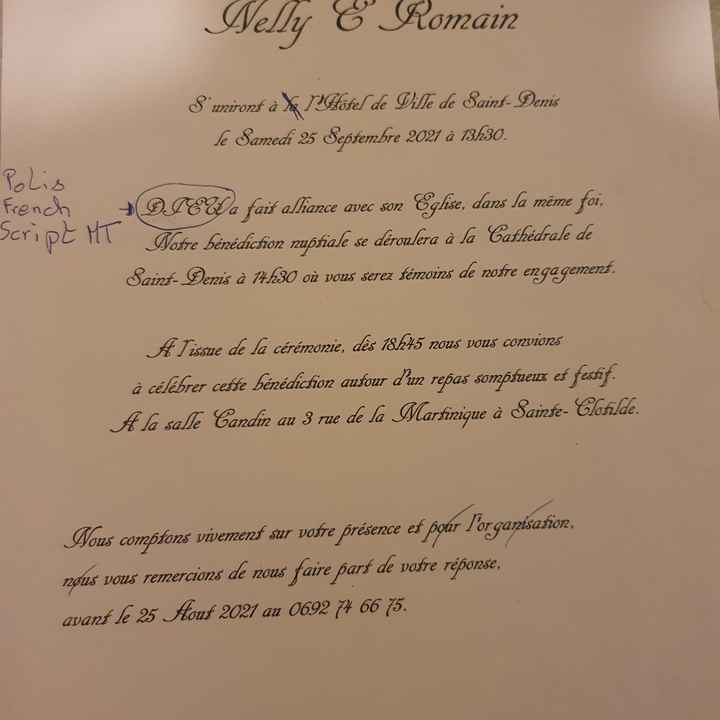 Nelly & Romain
S'uniront à la l'Hôtel de Ville de Saint-Denis
le Samedi 25 Septembre 2021 à 13h30.
Polis
French
Script MT
DIEU a fait alliance avec son Eglise, dans la même foi.
Notre bénédiction nuptiale se déroulera à la Cathédrale de
Saint-Denis à 14h30 où vous serez témoins de notre engagement.
A l'issue de la cérémonie, dès 18h45 nous vous convions
à célébrer cette bénédiction autour d'un repas somptueux et festif.
A la salle Candin au 3 rue de la Martinique à Sainte-Clotilde.
Nous comptons vivement sur votre présence et pour l'organisation,
nous vous remercions de nous faire part de votre réponse,
avant le 25 Aout 2021 au 0692 74 66 75.